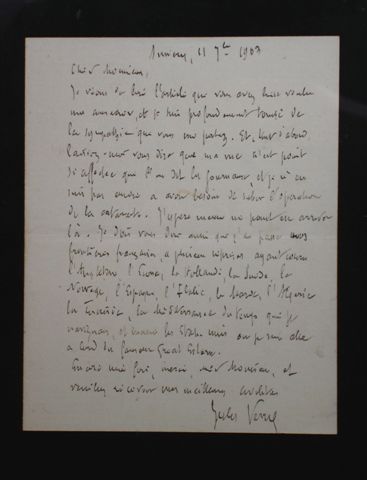 Amiens, 11 7bre 1903
Cher Monsieur,
Je viens de lire l'article que vous avez bien voulu
me consacrer, et je suis profondément touché de
la sympathie que vous me portez. Et, tout d'abord
laissez-moi vous dire que ma vue n'est point
si affectée que l'on dit les journaux, et je n'en
suis pas encore à avoir besoin de subir l'opération
de la cataracte. J'espère même ne point en arriver
là. Je dois vous dire aussi que j'ai passé
frontières françaises à plusieurs reprises ayant couru
l'Angleterre, l'Ecosse, la Hollande, la Suède, la
Norwège, l'Espagne, l'Italie, le Maroc, l'Algérie
la Tunisie, la Méditerranée du temps que je
naviguais, et les Etats Unis où je suis allé
à bord du fameux Great Eastern.
Encore une fois, merci, cher Monsieur, et
veuillez recevoir mes meilleurs
Jules Verne